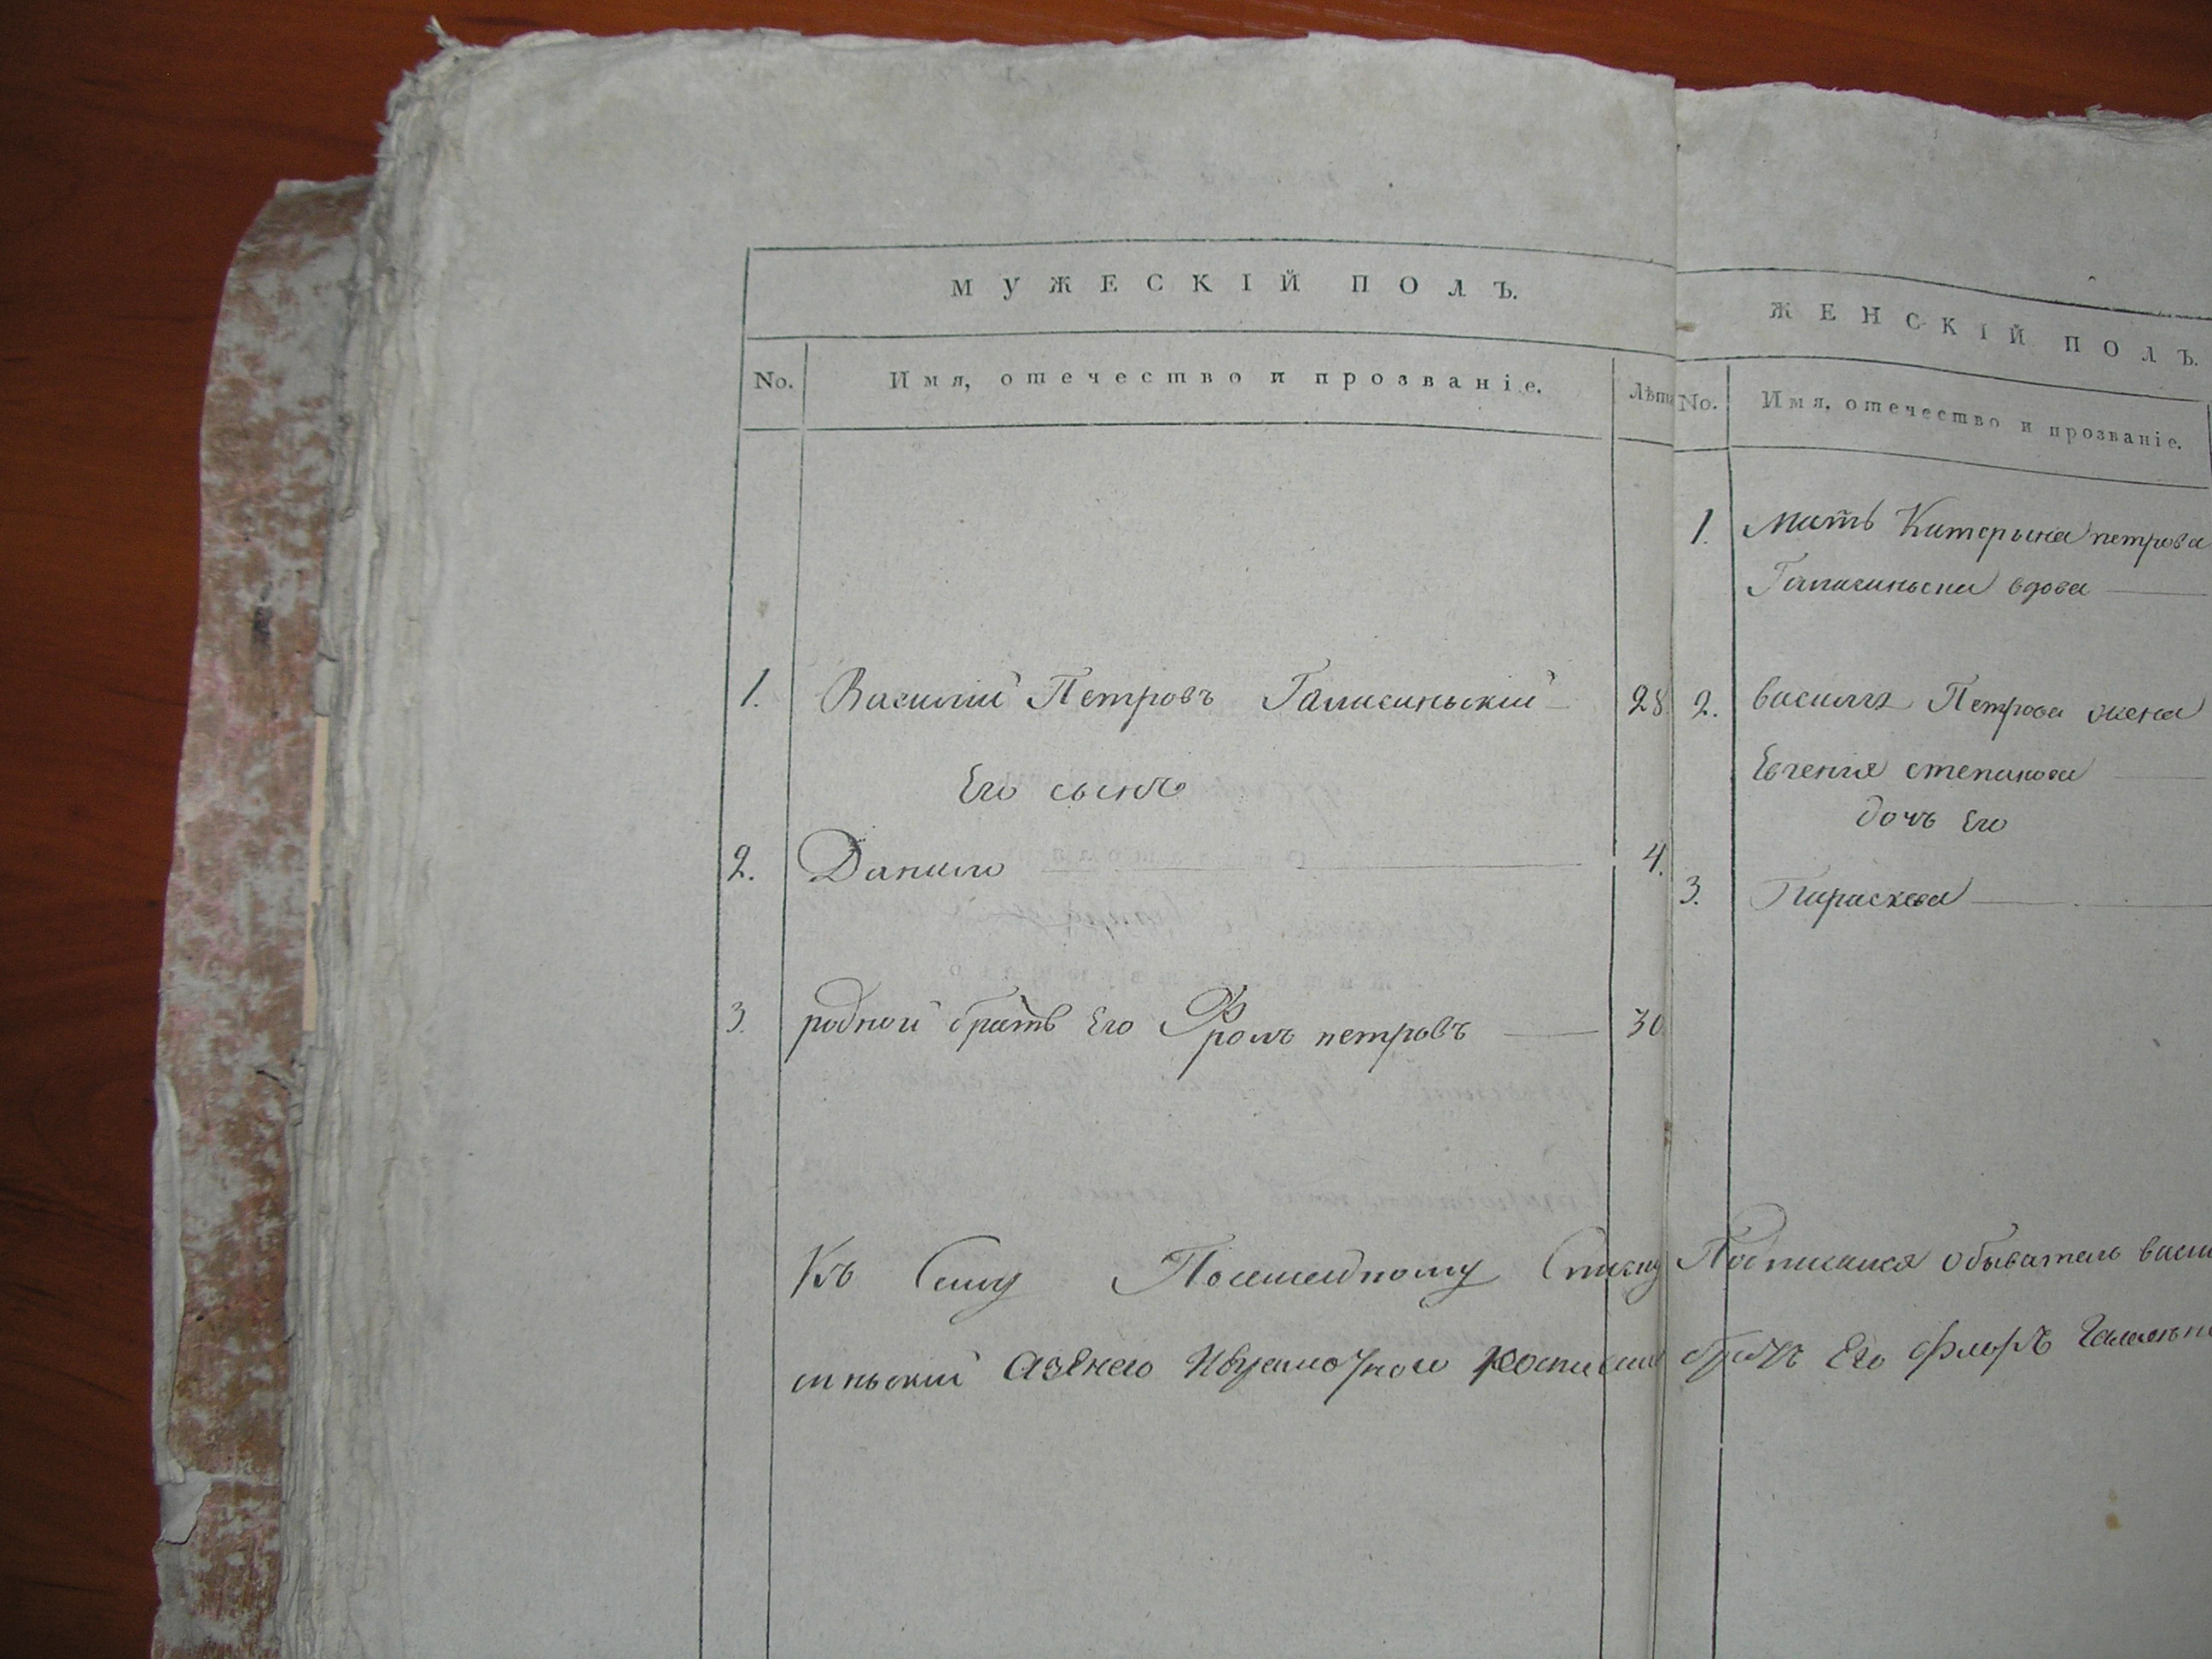 МУЖЕСКІЙ ПОЛЪ.
No. Имя, отечество и прозваніе. Лѣта
1. Василій Петровъ Галисиньскій 28.
Его сынъ
2. Данило 4.
3. родной братъ Его Фролъ петровъ 30
Къ Сему Посемейному Списку
синьскій
ЖЕНСКІЙ ПОЛЪ.
No. Имя, отечество и прозваніе.
1. Мать Катерына петрова
вдова
2. василия Петрова жена
Евгения степанова
дочь Его
3. Параскева
Подписался обыватель васи
братъ Его флоръ